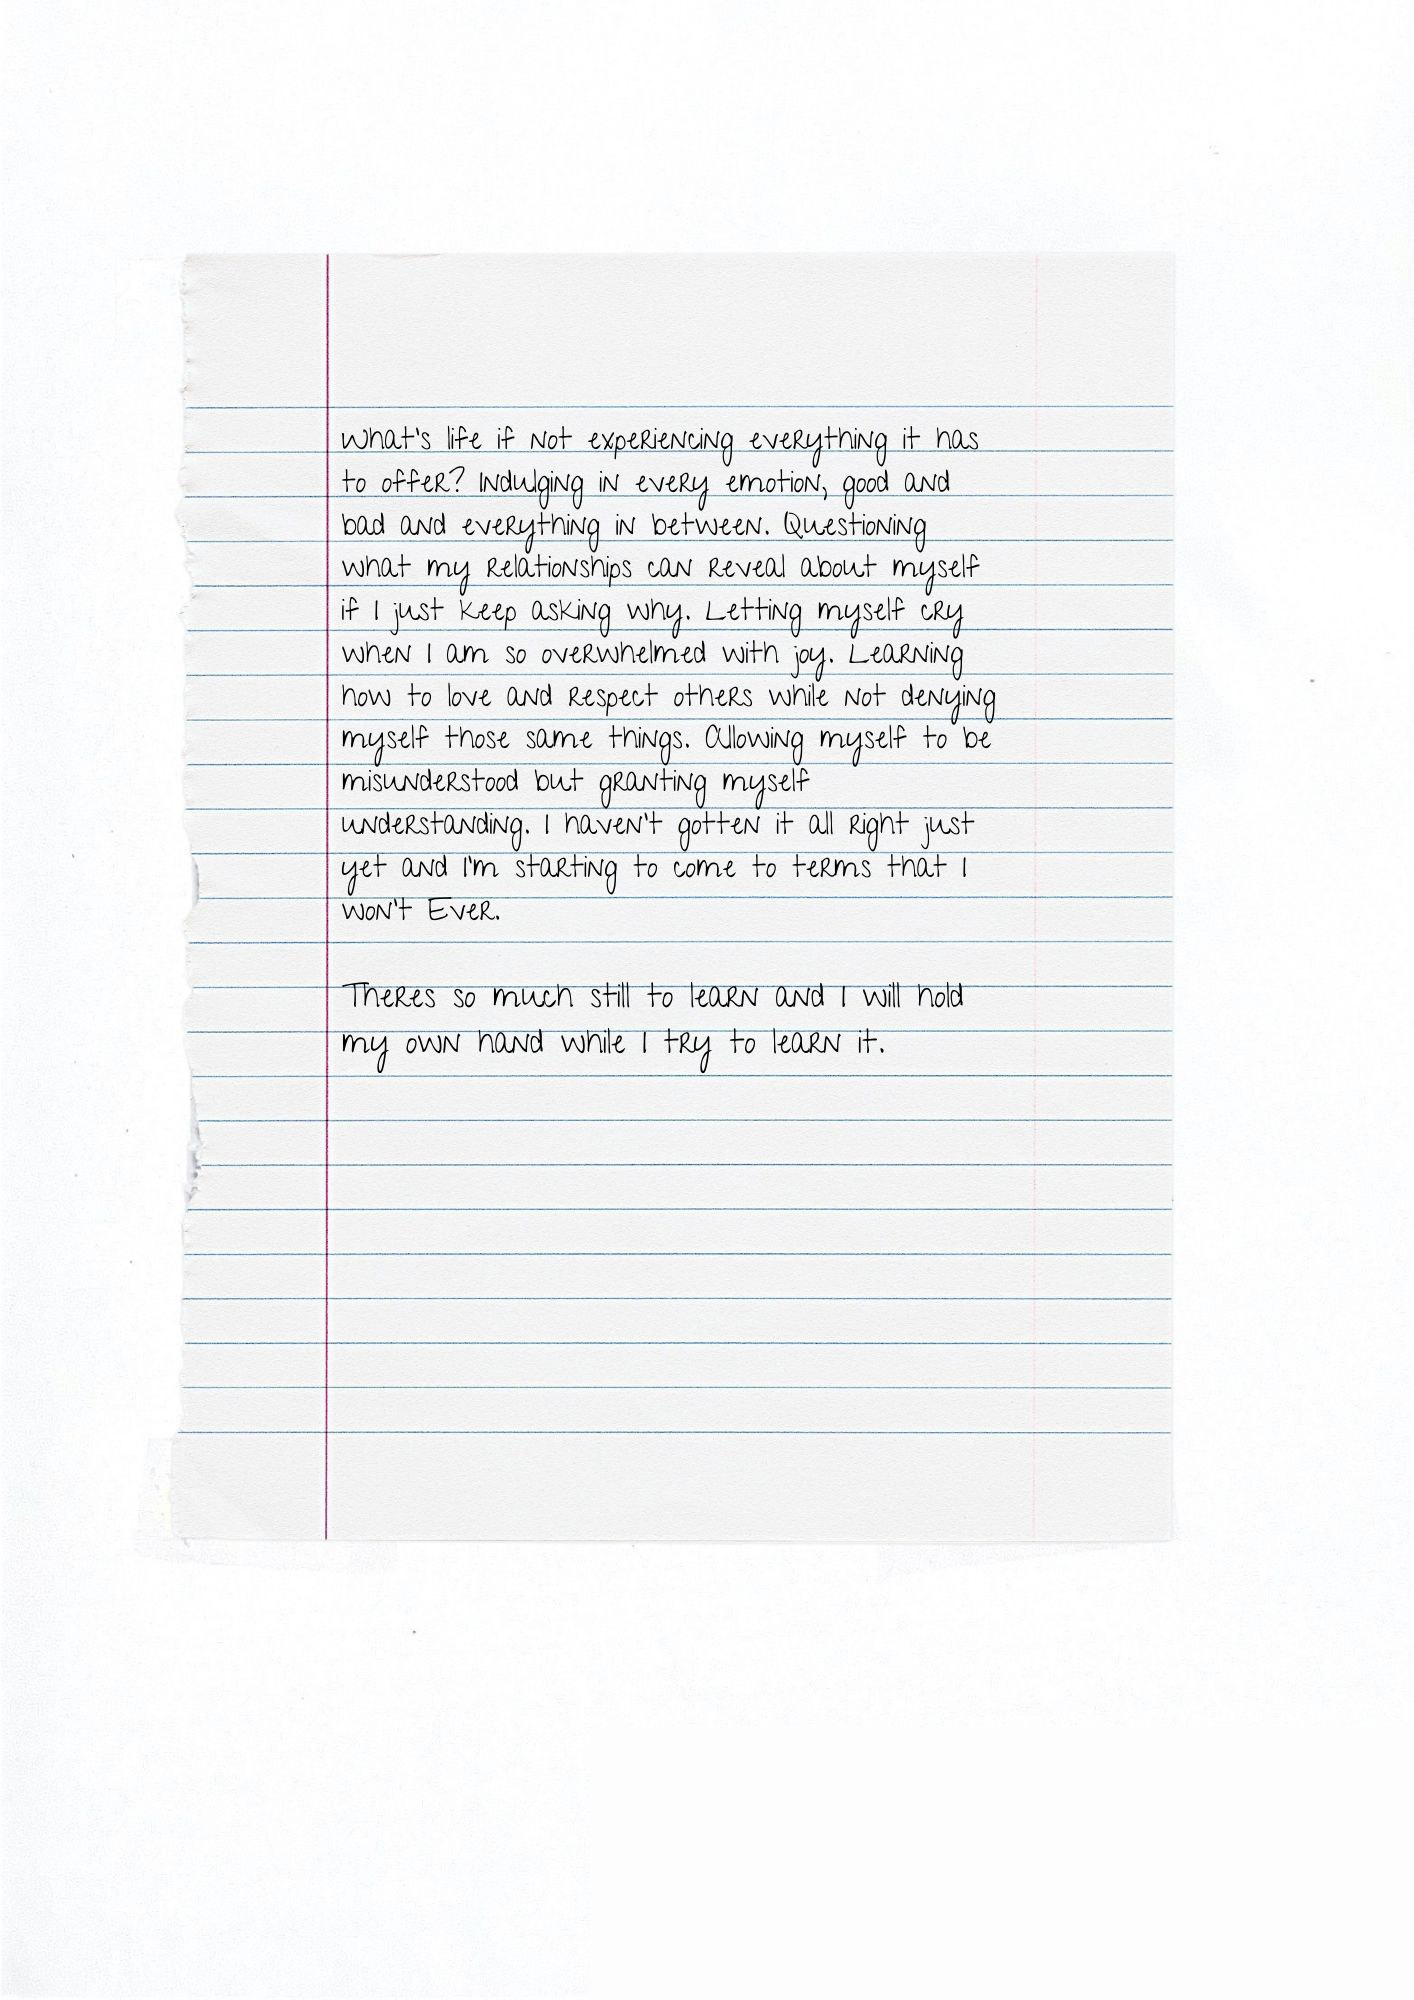 What's life if not experiencing everything it has
to offer? Indulging in every emotion, good and
bad and everything in between. Questioning
what my relationships can reveal about myself
if I just keep asking why. Letting myself cry
when I am so overwhelmed with joy. Learning
how to love and respect others while not denying
myself those same things. Allowing myself to be
misunderstood but granting myself
understanding. I haven't gotten it all right just
yet and I'm starting to come to terms that I
won't Ever.
Theres so much still to learn and I will hold
my own hand while I try to learn it.